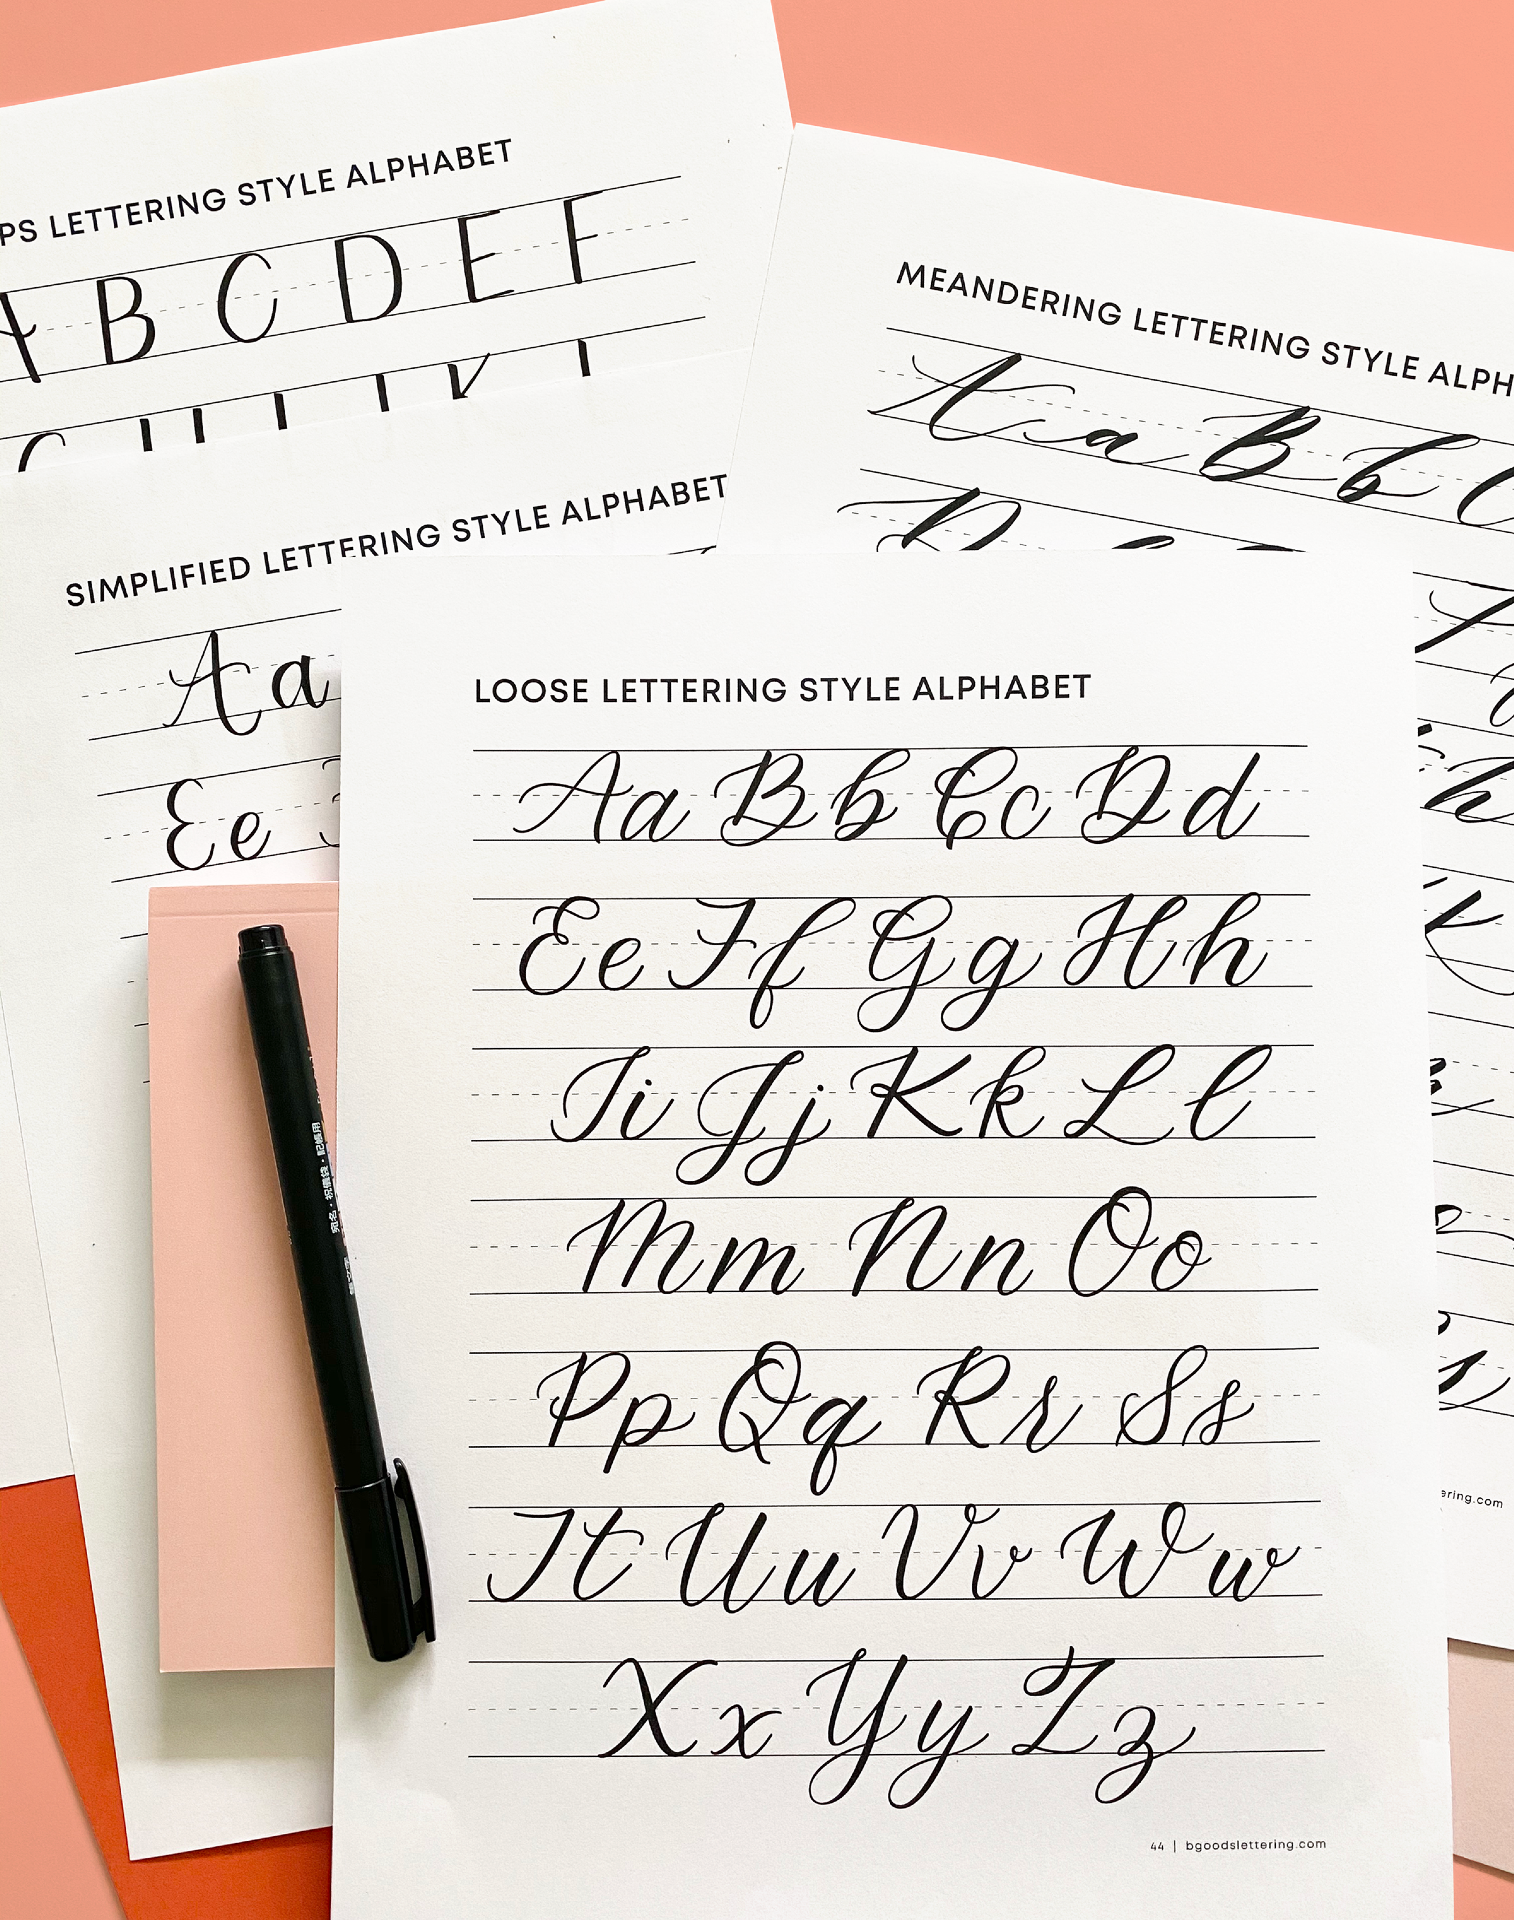 PS LETTERING STYLE ALPHABET
A B C D E F
MEANDERING LETTERING STYLE ALPH
A a B b C
D
SIMPLIFIED LETTERING STYLE ALPHABET
Aa
Ee
LOOSE LETTERING STYLE ALPHABET
Aa Bb Cc Dd
Ee Ff Gg Hh
Ii Jj Kk Ll
Mm Nn Oo
Pp Qq Rr Ss
Tt Uu Vv Ww
Xx Yy Zz
44 | bgoodslettering.com
ering.com
宛名・祝儀袋・記帳用